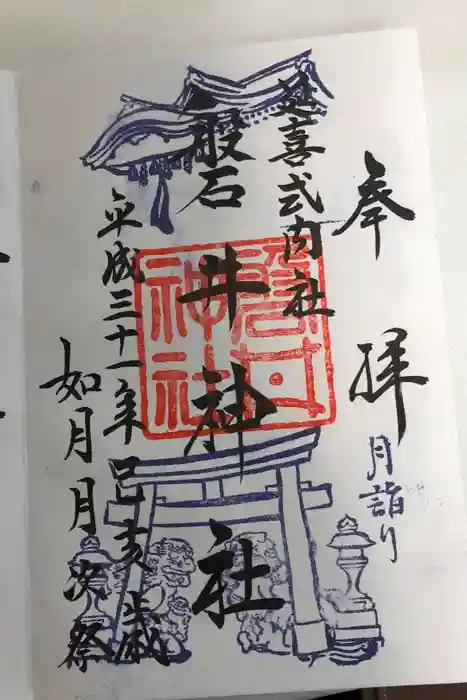 奉拝
月詣り
延喜式内社
磐井神社
磐井神社
平成三十一年己亥歳
如月月次祭